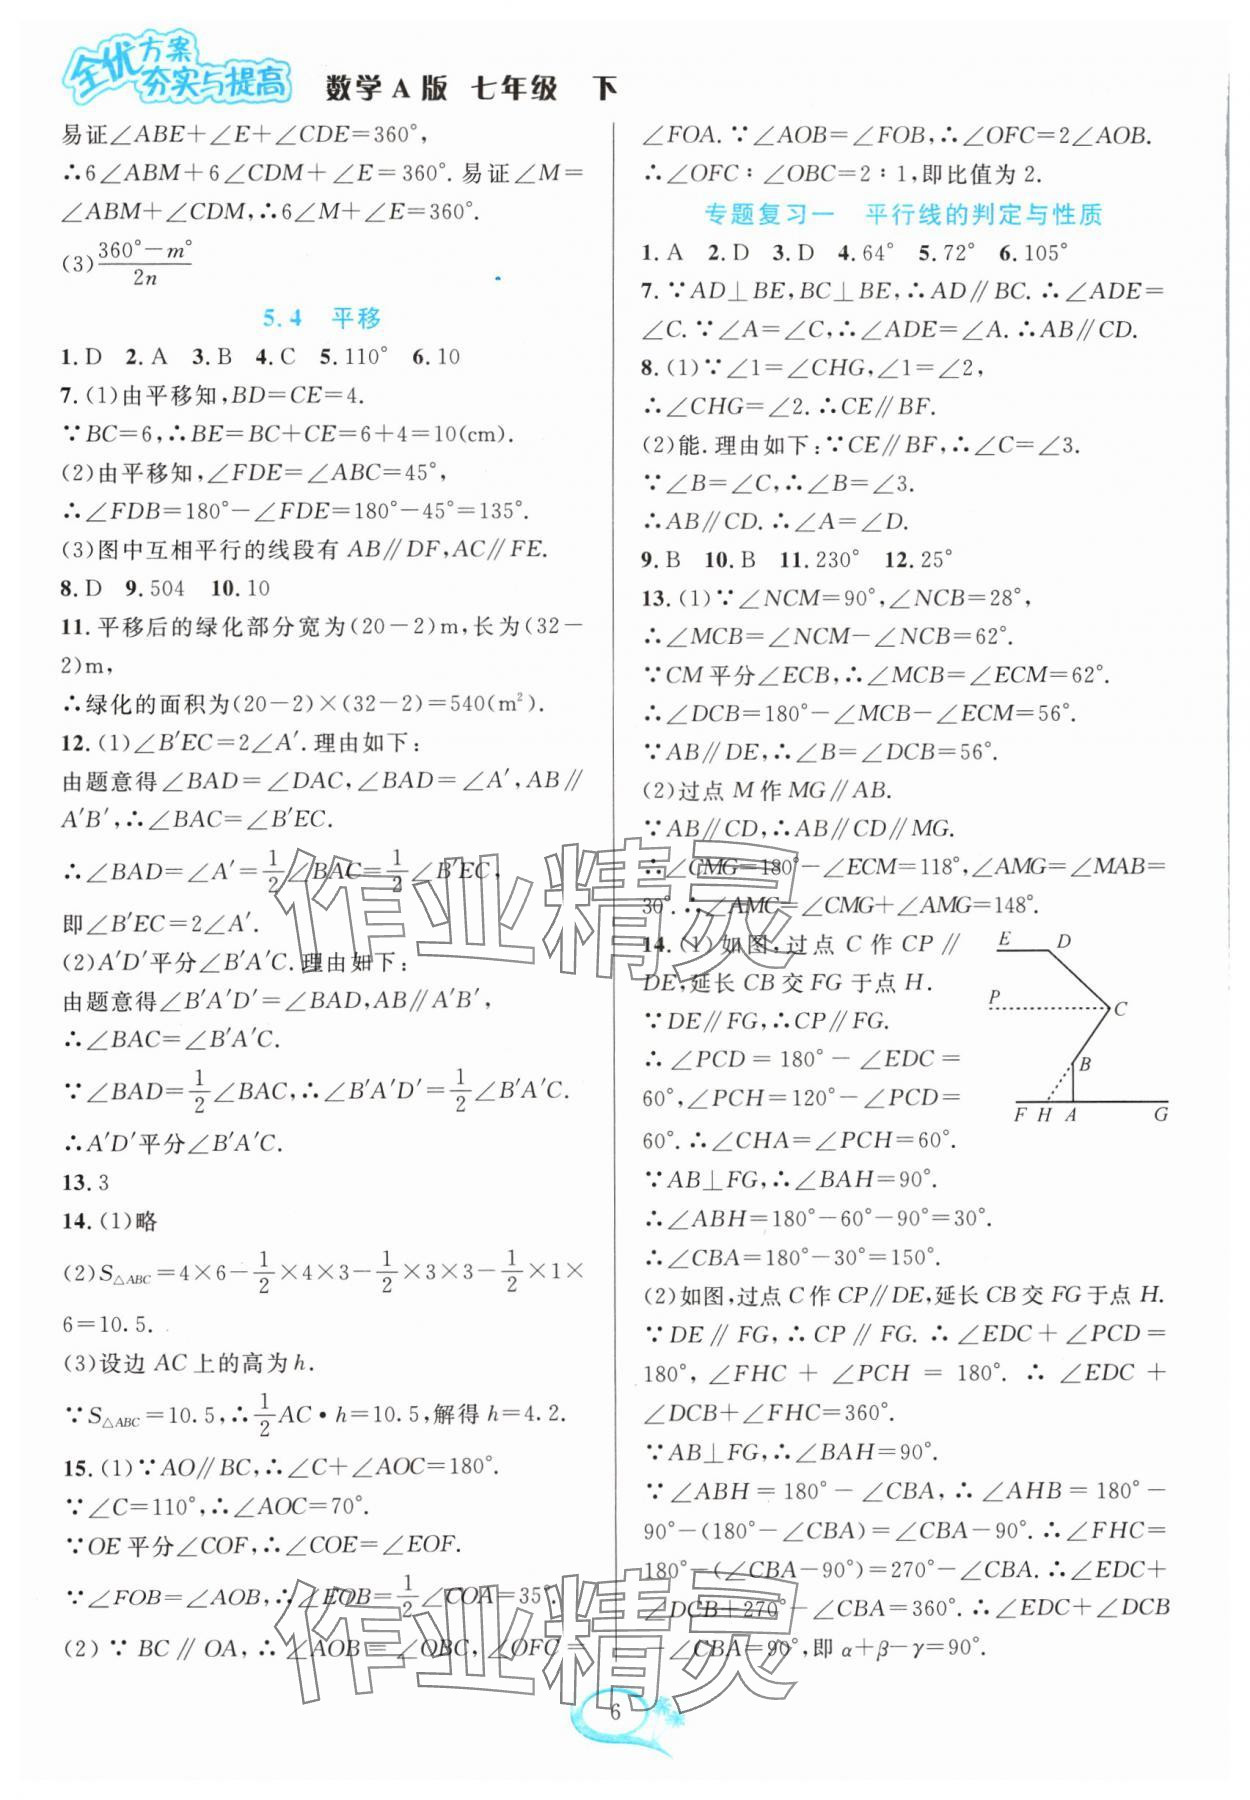 全优方案
夯实与提高
数学A版 七年级 下
易证∠ABE+∠E+∠CDE=360°,
∴6∠ABM+6∠CDM+∠E=360°.易证∠M=
∠ABM+∠CDM,∴6∠M+∠E=360°.
(3)(360°-m°)/2n
5.4 平移
1.D 2.A 3.B 4.C 5.110° 6.10
7.(1)由平移知,BD=CE=4.
∵BC=6,∴BE=BC+CE=6+4=10(cm).
(2)由平移知,∠FDE=∠ABC=45°,
∴∠FDB=180°-∠FDE=180°-45°=135°.
(3)图中互相平行的线段有 AB∥DF,AC∥FE.
8.D 9.504 10.10
11.平移后的绿化部分宽为(20-2)m,长为(32-
2)m,
∴绿化的面积为(20-2)×(32-2)=540(m²).
12.(1)∠B′EC=2∠A′.理由如下:
由题意得∠BAD=∠DAC,∠BAD=∠A′,AB∥
A′B′,∴∠BAC=∠B′EC.
∴∠BAD=∠A′=1/2∠BAC=1/2∠B′EC,
即∠B′EC=2∠A′.
(2)A′D′平分∠B′A′C.理由如下:
由题意得∠B′A′D′=∠BAD,AB∥A′B′,
∴∠BAC=∠B′A′C.
∵∠BAD=1/2∠BAC,∴∠B′A′D′=1/2∠B′A′C.
∴A′D′平分∠B′A′C.
13.3
14.(1)略
(2)S△ABC=4×6-1/2×4×3-1/2×3×3-1/2×1×
6=10.5.
(3)设边 AC 上的高为h.
∵S△ABC=10.5,∴1/2AC·h=10.5,解得h=4.2.
15.(1)∵AO∥BC,∴∠C+∠AOC=180°.
∵∠C=110°,∴∠AOC=70°.
∵OE平分∠COF,∴∠COE=∠EOF.
∵∠FOB=∠AOB,∴∠EOB=1/2∠COA=35°.
(2)∵BC∥OA,∴∠AOB=∠OBC,∠OFC=
∠FOA.∵∠AOB=∠FOB,∴∠OFC=2∠AOB.
∴∠OFC:∠OBC=2:1,即比值为2.
专题复习一 平行线的判定与性质
1.A 2.D 3.D 4.64° 5.72° 6.105°
7.∵AD⊥BE,BC⊥BE,∴AD∥BC.∴∠ADE=
∠C.∵∠A=∠C,∴∠ADE=∠A.∴AB∥CD.
8.(1)∵∠1=∠CHG,∠1=∠2,
∴∠CHG=∠2.∴CE∥BF.
(2)能.理由如下:∵CE∥BF,∴∠C=∠3.
∵∠B=∠C,∴∠B=∠3.
∴AB∥CD.∴∠A=∠D.
9.B 10.B 11.230° 12.25°
13.(1)∵∠NCM=90°,∠NCB=28°,
∴∠MCB=∠NCM-∠NCB=62°.
∵CM平分∠ECB,∴∠MCB=∠ECM=62°.
∴∠DCB=180°-∠MCB-∠ECM=56°.
∵AB∥DE,∴∠B=∠DCB=56°.
(2)过点 M 作 MG∥AB.
∵AB∥CD,∴AB∥CD∥MG.
∴∠CMG=180°-∠ECM=118°,∠AMG=∠MAB=
30°.∴∠AMC=∠CMG+∠AMG=148°.
14.(1)如图,过点 C 作 CP∥
DE,延长 CB 交 FG 于点 H.
∵DE∥FG,∴CP∥FG.
∴∠PCD=180°-∠EDC=
60°,∠PCH=120°-∠PCD=
60°.∴∠CHA=∠PCH=60°.
∵AB⊥FG,∴∠BAH=90°.
∴∠ABH=180°-60°-90°=30°.
∴∠CBA=180°-30°=150°.
E D
P C
B
F H A G
(2)如图,过点C作CP∥DE,延长CB交FG于点H.
∵DE∥FG,∴CP∥FG.∴∠EDC+∠PCD=
180°,∠FHC+∠PCH=180°.∴∠EDC+
∠DCB+∠FHC=360°.
∵AB⊥FG,∴∠BAH=90°.
∵∠ABH=180°-∠CBA,∴∠AHB=180°-
90°-(180°-∠CBA)=∠CBA-90°.∴∠FHC=
180°-(∠CBA-90°)=270°-∠CBA.∴∠EDC+
∠DCB+270°-∠CBA=360°.∴∠EDC+∠DCB
-∠CBA=90°,即α+β-γ=90°.
作业精灵
作业精灵
6